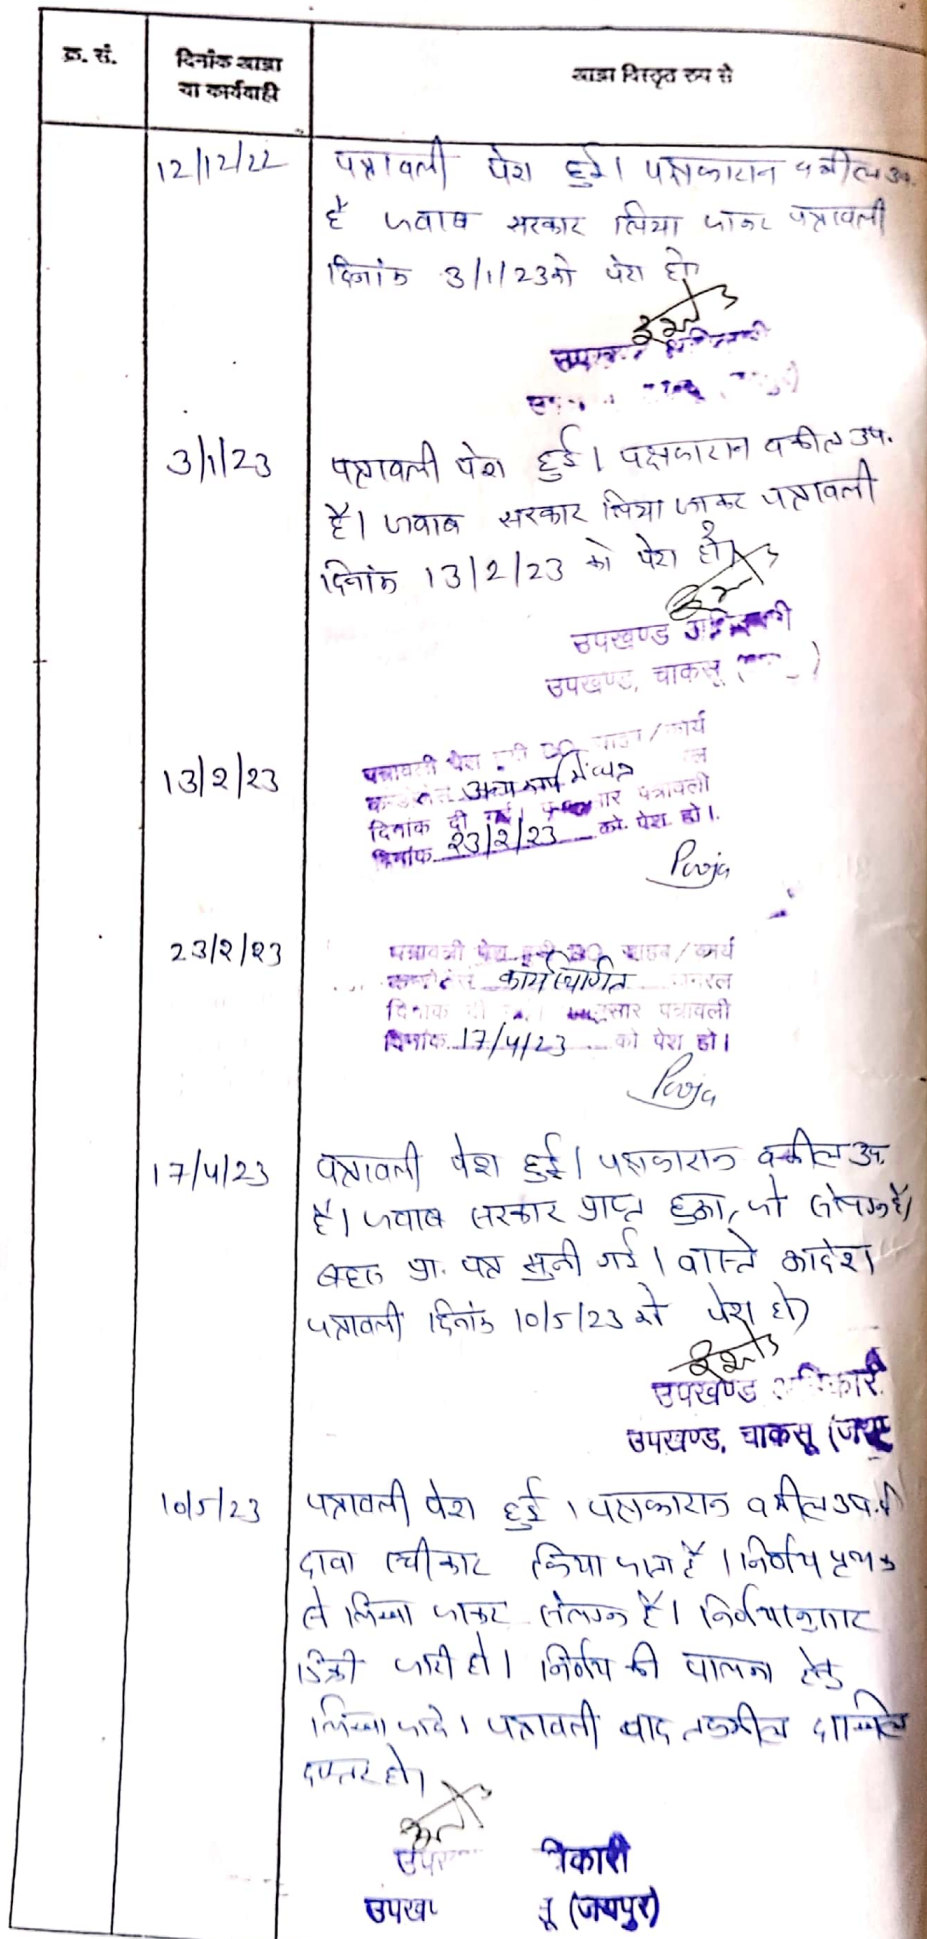 क्र. सं.
दिनांक आज्ञा
या कार्यवाही
आज्ञा विस्तृत रूप से
12/12/22
पत्रावली पेश हुई। पक्षकारान वकील उप.
है जवाब सरकार लिया जाकर पत्रावली
दिनांक 3/1/23 को पेश हो
उपखण्ड अधिकारी
3/1/23
पत्रावली पेश हुई। पक्षकारान वकील उप.
है। जवाब सरकार लिया जाकर पत्रावली
दिनांक 13/2/23 को पेश हो
उपखण्ड अधिकारी
उपखण्ड, चाकसू
13/2/23
पत्रावली पेश हुई / कार्य
अन्य कार्य में व्यस्त
दिनांक दी गई। पत्रावली
दिनांक 23/2/23 को पेश हो।
Pooja
23/2/23
पत्रावली पेश हुई / कार्य
कार्य स्थगित
दिनांक दी अनुसार पत्रावली
दिनांक 17/4/23 को पेश हो।
Pooja
17/4/23
पत्रावली पेश हुई। पक्षकारान वकील उप.
है। जवाब सरकार प्राप्त हुआ, जो संलग्न है।
बहस प्रा. पत्र सुनी गई। वास्ते आदेश
पत्रावली दिनांक 10/5/23 को पेश हो
उपखण्ड अधिकारी
उपखण्ड, चाकसू (जयपुर
10/5/23
पत्रावली पेश हुई। पक्षकारान वकील उप. है
दावा स्वीकार किया जाता है। निर्णय पृथक
से लिखा जाकर संलग्न है। निर्णयानुसार
डिक्री जारी हो। निर्णय की पालना हेतु
लिखा जावे। पत्रावली बाद तकमील दाखिल
दफ्तर हो।
उपख िकारी
उपख ू (जयपुर)